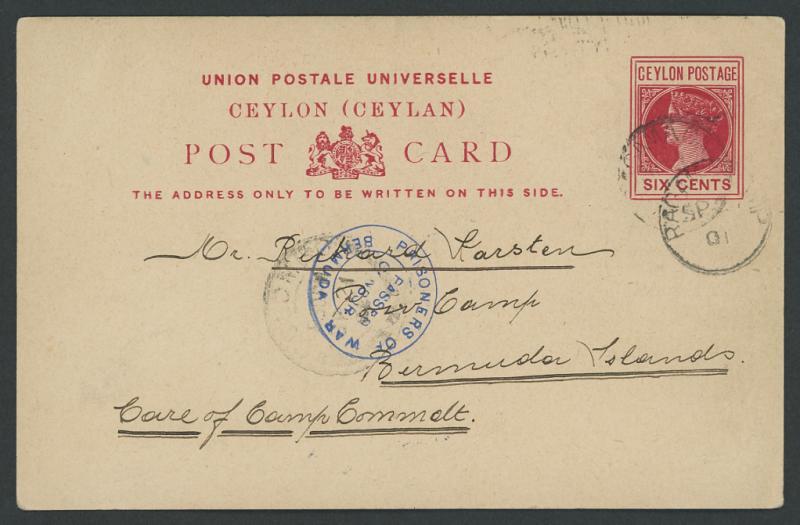 UNION POSTALE UNIVERSELLE
CEYLON (CEYLAN)
POST CARD
THE ADDRESS ONLY TO BE WRITTEN ON THIS SIDE.
CEYLON POSTAGE
SIX CENTS
SP
01
Mr. Richard Karsten
Camp
Bermuda Islands.
Care of Camp Commdt.
PRISONERS OF WAR
BERMUDA
PASSED